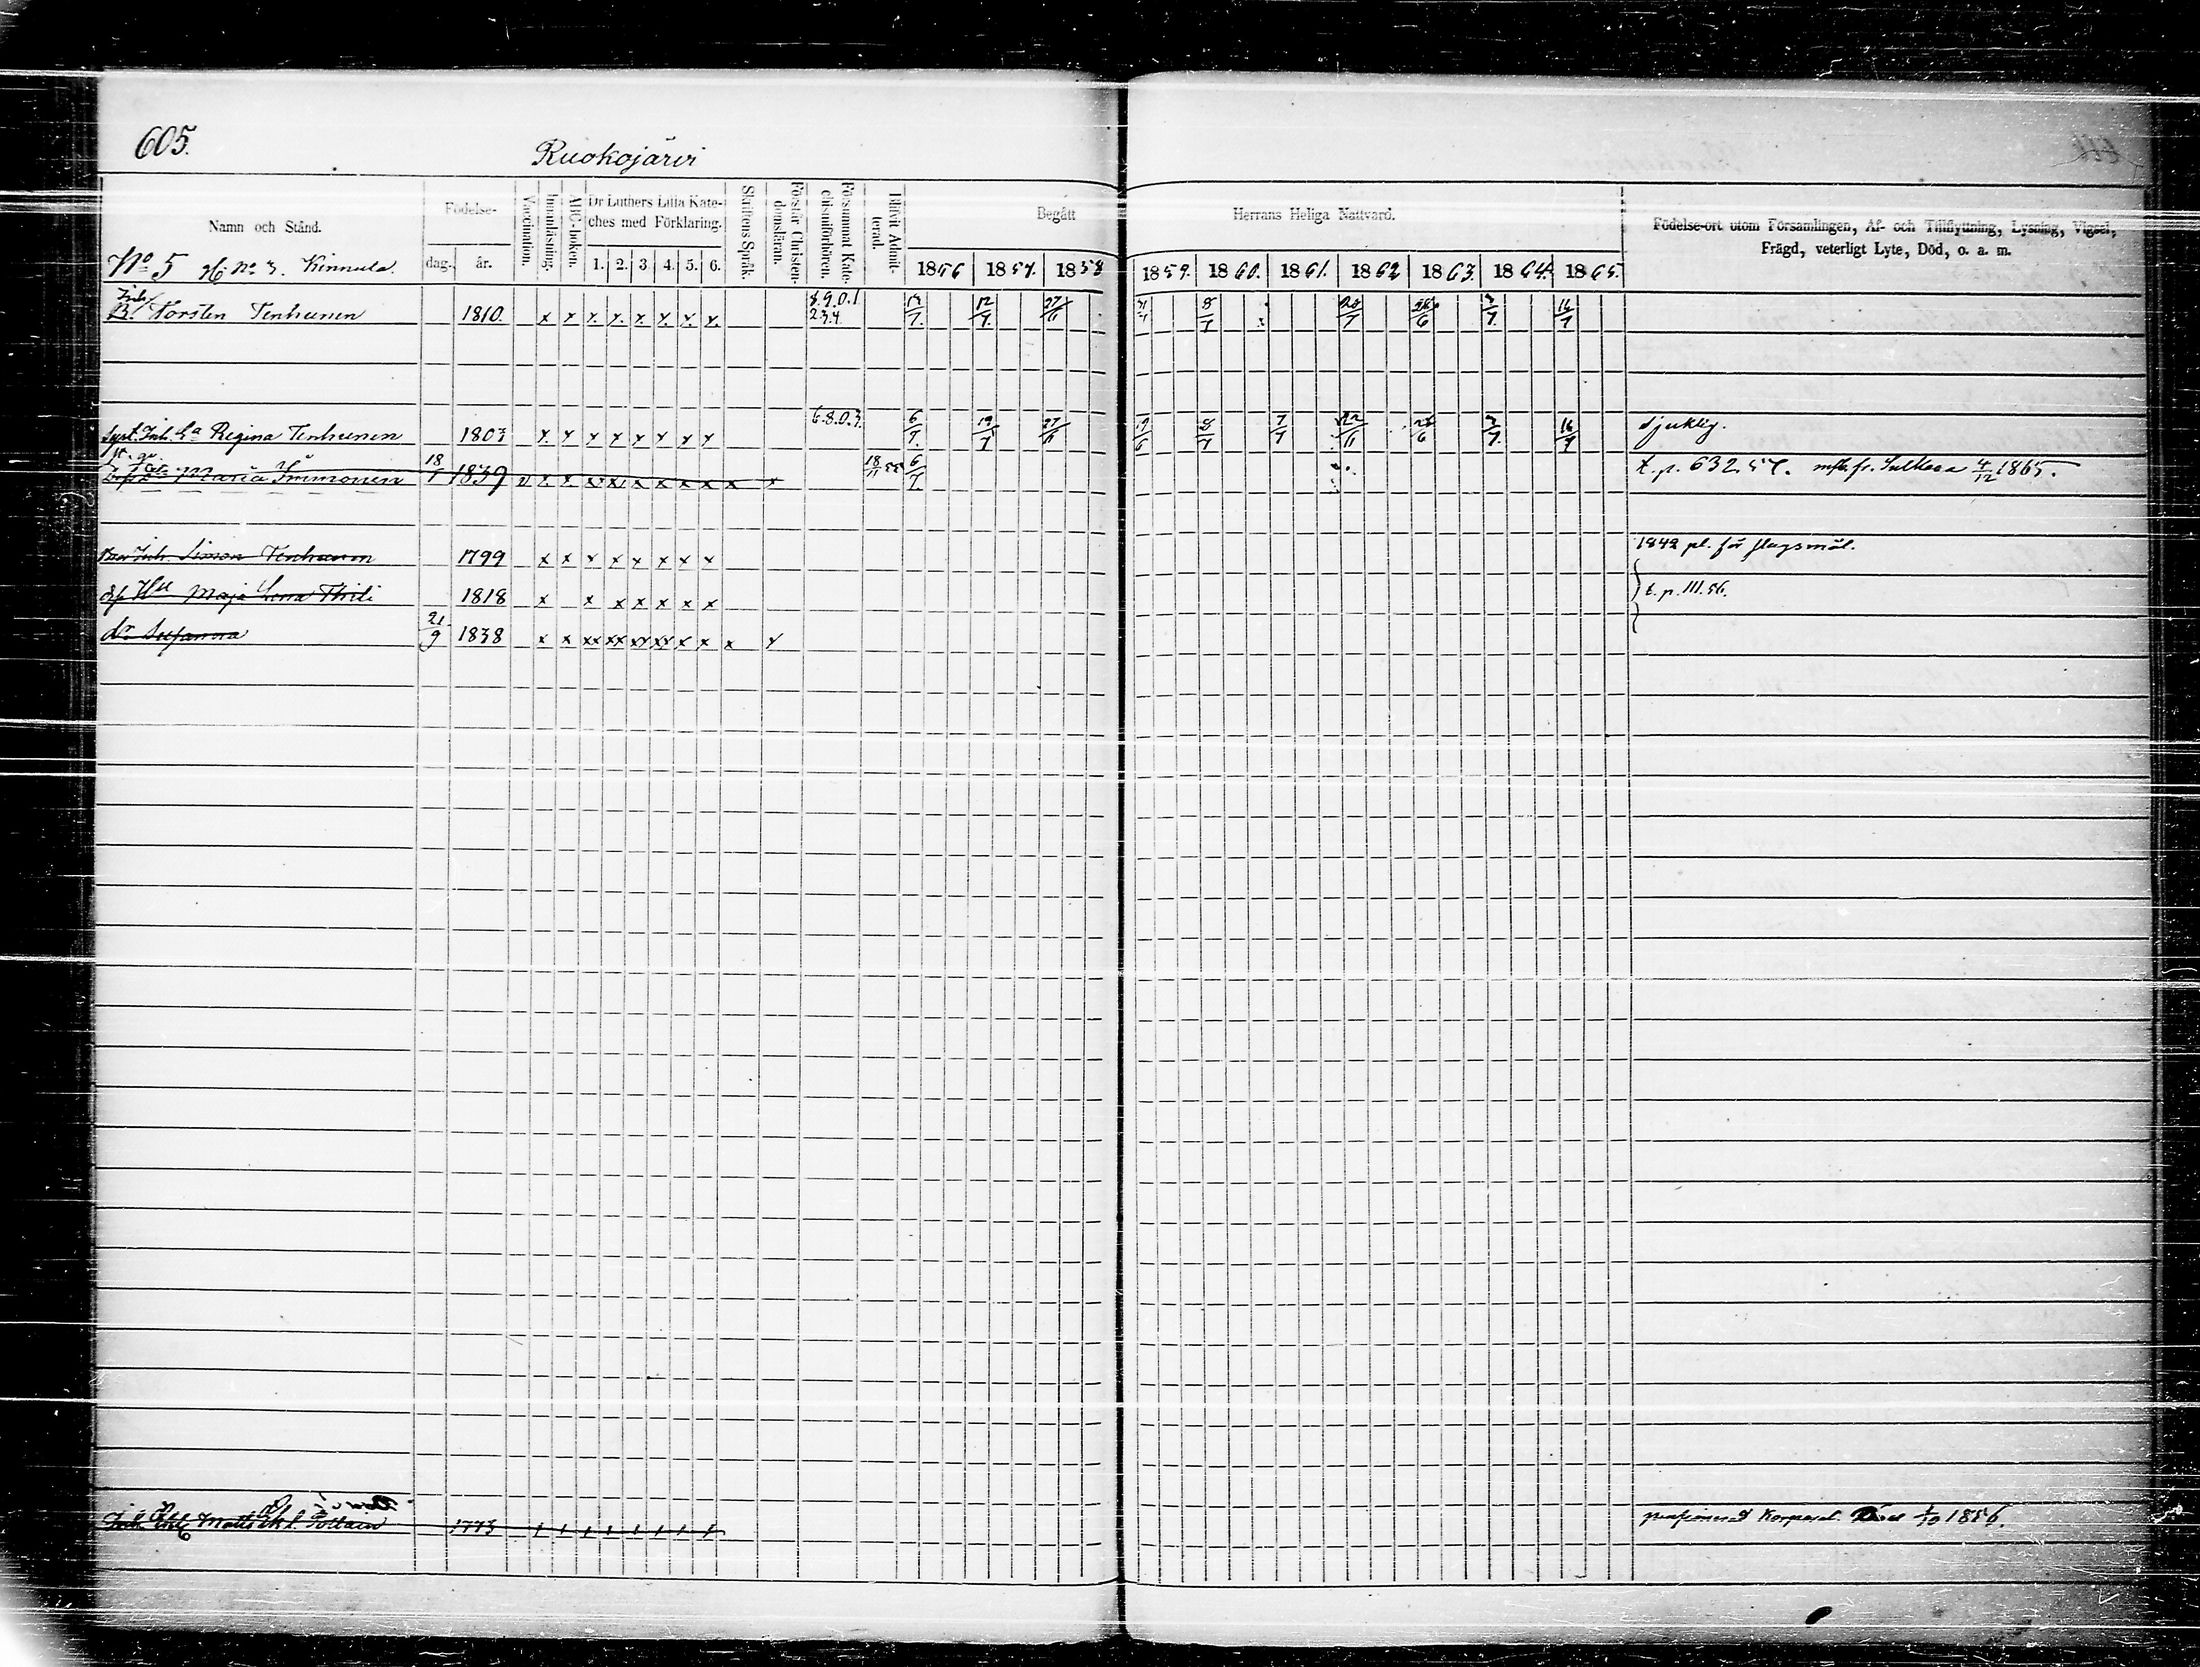 605.
Ruokojärvi
Namn och Stånd.
Födelse-
dag. år.
Vaccination.
Innanläsning.
ABC-boken.
Dr Luthers Lilla Kate-
ches med Förklaring.
1. 2. 3 4. 5. 6.
Skriftens Språk.
Förstår Christen-
domsläran.
Försummat Kate-
chismiförhören.
Blifvit Admit-
terad.
Begått Herrans Heliga Nattvard.
1856 1857. 1858 1859. 1860. 1861. 1862 1863. 1864. 1865.
Födelse-ort utom Församlingen, Af- och Tillflyttning, Lysning, Vigsel,
Frägd, veterligt Lyte, Död, o. a. m.
No 5 No 3. Kinnula.
Inh.
B. Torsten Tenhunen 1810. x x x. x. x x. x. x. 8.9.0.1. 2.3.4 12/7 27/6 8/7 20/7 26/6 3/7 16/7
Inh. Ea Regina Tenhunen 1803 x. x x x x x x x 6.8.0.3. 6/7. 19/7 27/6 19/6 8/7 7/7 22/6 26/6 3/7. 16/7 Sjuklig.
Maria Immonen 18/1 1839 v x. x. x x x x x x x x 18/11 55 6/7. t. p. 632. 57. fr. Sulkava 4/12 1865.
Inh. Simon Tenhunen 1799 x x x x x x x x 1842 pl. för slagsmål.
Maja Lena 1818 x x x x x x x } t. p. 111. 56.
dr Susanna 21/9 1838 x x xx xx xx xx x x x x
Inh. Matts 1773 x x x x x x x x Korporal. Död 1/10 1856.